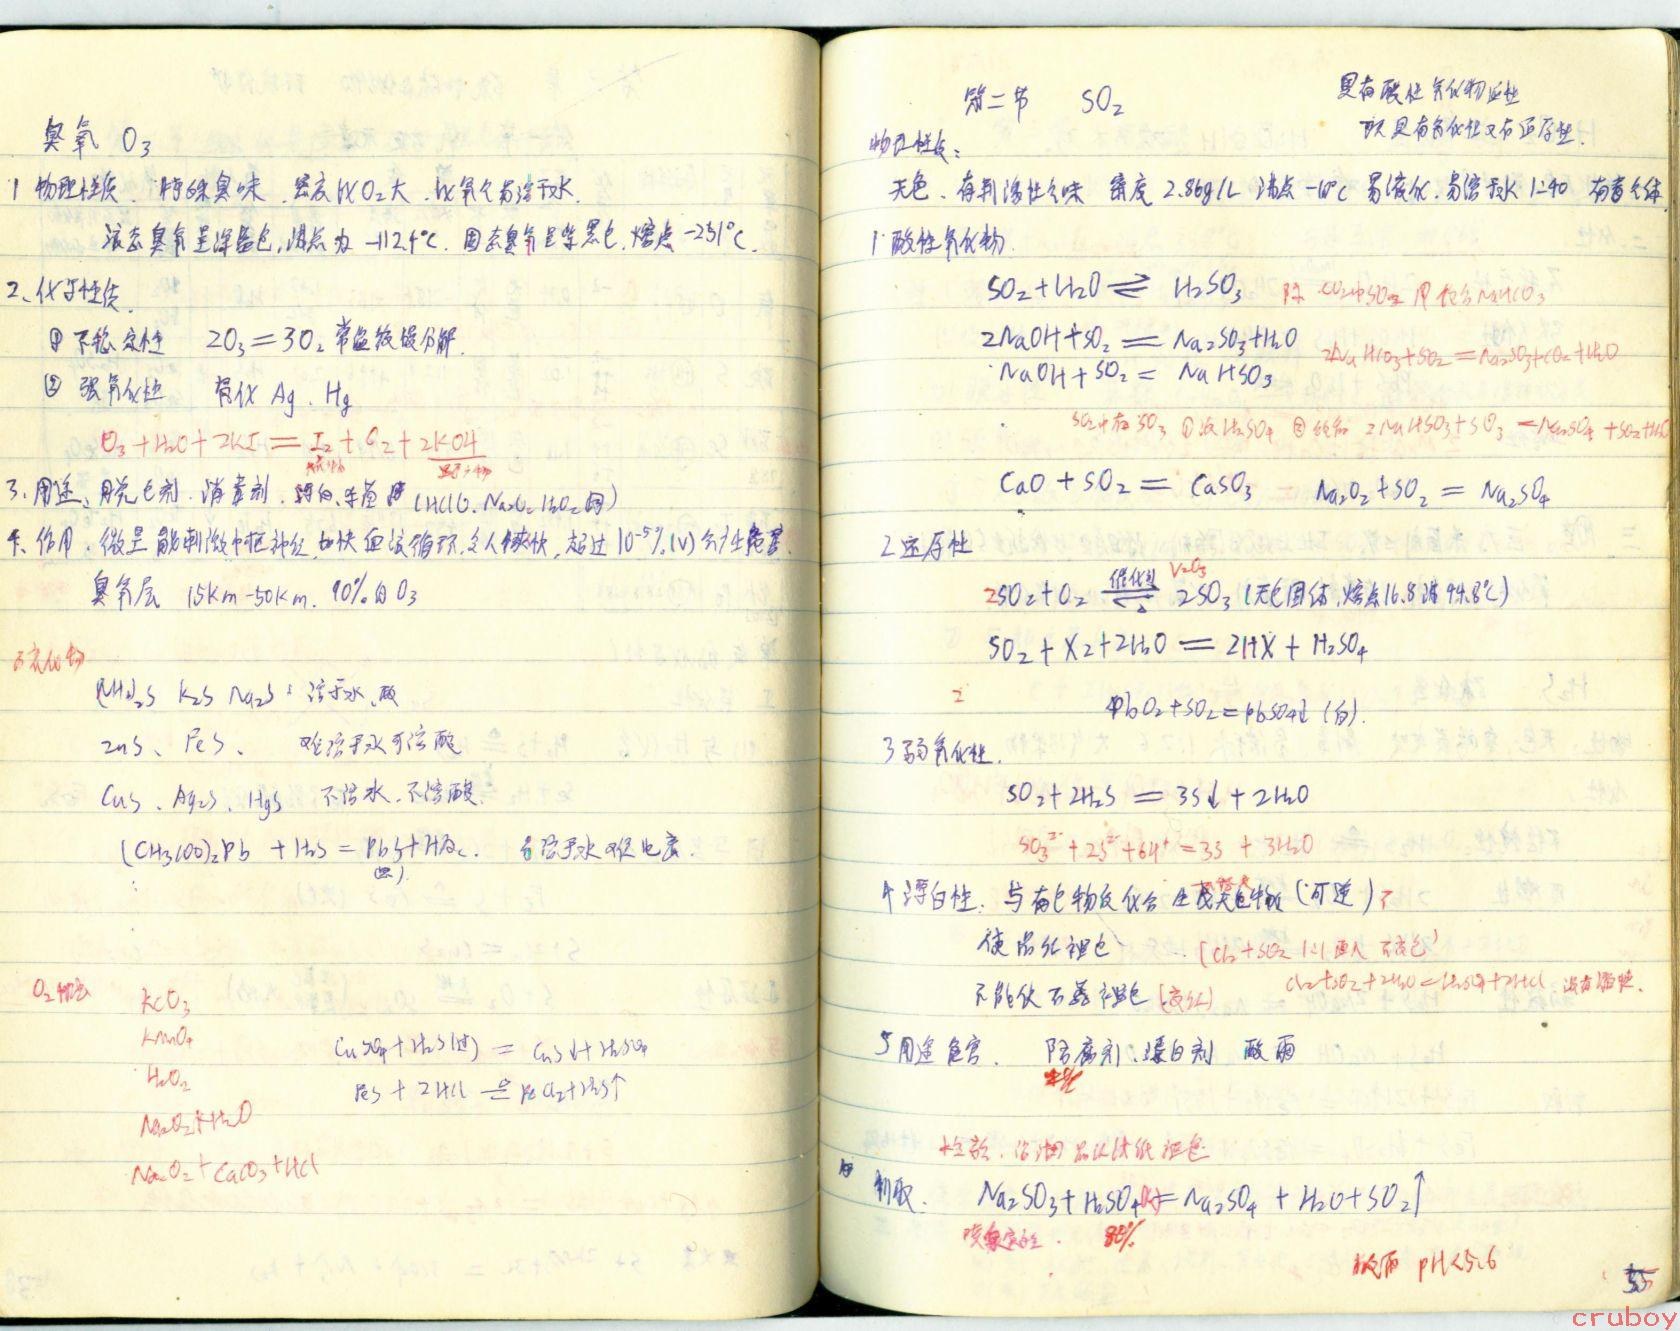 臭氧 O₃
1 物理性质. 特殊臭味. 密度比O₂大. 比氧气易溶于水.
液态臭氧呈深蓝色,沸点为 -112.4°C. 固态臭氧呈紫黑色,熔点 -251°C.
2、化学性质.
① 不稳定性 2O₃=3O₂ 常温缓慢分解.
② 强氧化性 氧化 Ag、Hg
O₃+H₂O+2KI=I₂+O₂+2KOH
3、用途、脱色剂. 消毒剂. (HClO、Na₂O₂ H₂O₂ 同)
4、作用. 微量能刺激中枢神经,加快血液循环,令人爽快,超过10⁻⁵%(V)会产生危害.
臭氧层 15Km-50Km. 90%的O₃
硫化物
(NH₄)₂S K₂S Na₂S: 溶于水、酸
ZnS、FeS、 难溶于水可溶酸
CuS、Ag₂S、HgS 不溶水.不溶酸.
(CH₃COO)₂Pb + H₂S = PbS+HAc. 易溶于水难电离.
(黑)
O₂制法
KClO₃
KMnO₄
H₂O₂
Na₂O₂+H₂O
Na₂O₂+CaCO₃+HCl
CuSO₄+H₂S(过) = CuS↓+H₂SO₄
FeS + 2HCl = FeCl₂+H₂S↑
第二节 SO₂
具有酸性氧化物通性
既具有氧化性又有还原性.
物理性质:
无色、有刺激性气味 密度 2.86g/L 沸点 -10°C 易液化.易溶于水 1:40 有毒气体.
1 酸性氧化物.
SO₂+H₂O⇌H₂SO₃ 除 CO₂中SO₂ 用饱合NaHCO₃
2NaOH+SO₂=Na₂SO₃+H₂O
2NaHCO₃+SO₂=Na₂SO₃+CO₂+H₂O
NaOH+SO₂=NaHSO₃
SO₂中有SO₃ ①浓H₂SO₄ ②饱和 2NaHSO₃+SO₃=Na₂SO₄+SO₂+H₂O
CaO + SO₂ = CaSO₃ Na₂O₂+SO₂ = Na₂SO₄
2 还原性
催化剂 V₂O₅
2SO₂+O₂ ⇌ 2SO₃ (无色固体,熔点16.8 沸44.8°C)
△
SO₂+X₂+2H₂O=2HX+H₂SO₄
PbO₂+SO₂=PbSO₄↓(白).
3 弱氧化性.
SO₂+2H₂S = 3S↓+2H₂O
SO₃²⁻+2S²⁻+6H⁺=3S+3H₂O
4 漂白性. 与有色物质化合生成无色物质(可逆)
使品红褪色 (Cl₂+SO₂ 1:1 通入 不变色)
Cl₂+SO₂+2H₂O=H₂SO₄+2HCl
不能使石蕊褪色(变红)
5 用途危害. 防腐剂.漂白剂 酸雨
检验. 沾湿品红试纸褪色
制取. Na₂SO₃+H₂SO₄(浓)=Na₂SO₄ + H₂O+SO₂↑
80%
酸雨 pH<5.6
55
cruboy